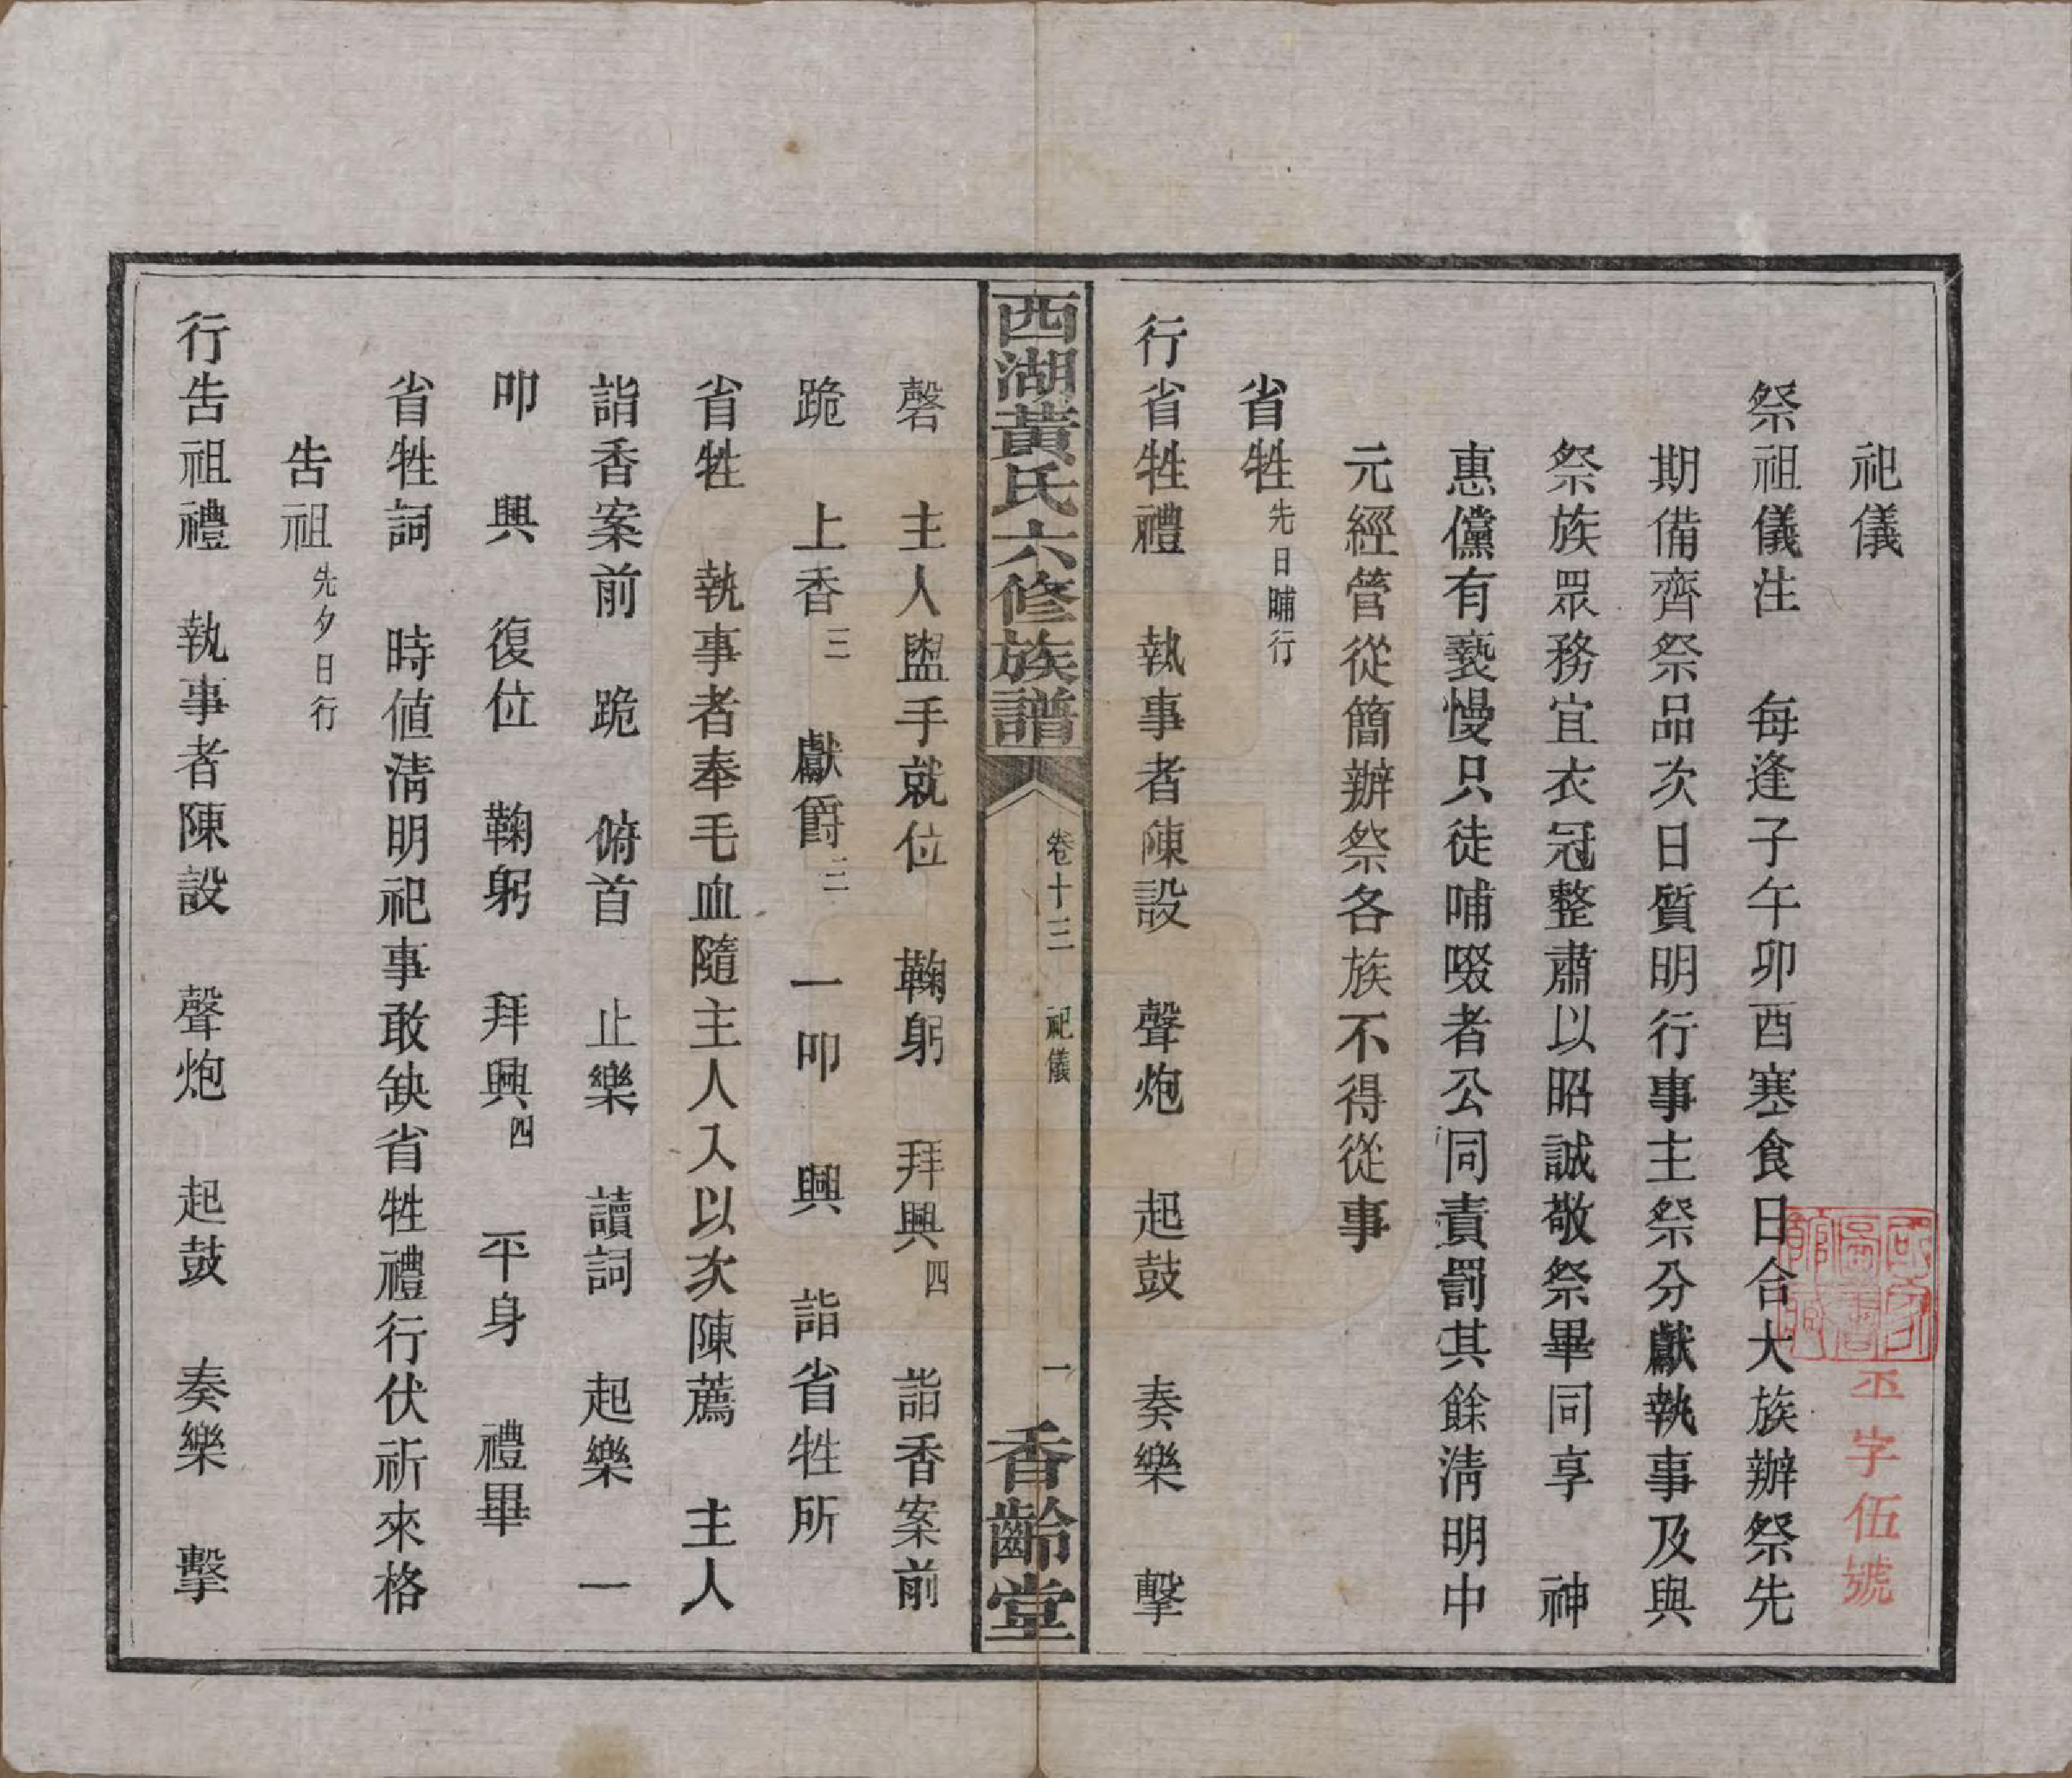 祀儀
祭祖儀注　每逢子午卯酉寒食日合大族辦祭先
期備齊祭品次日質明行事主祭分獻執事及與
祭族眾務宜衣冠整肅以昭誠敬祭畢同享　神
惠儻有褻慢只徒哺啜者公同責罰其餘淸明中
元經管從簡辦祭各族不得從事
省牲先日晡行
行省牲禮　執事者陳設　聲炮　起鼓　奏樂　擊
西湖黃氏六修族譜　卷十三　祀儀　一　香齡堂
磬　主人盥手就位　鞠躬　拜興四　詣香案前
跪　上香三　獻爵三　一叩　興　詣省牲所
省牲　執事者奉毛血隨主人入以次陳薦　主人
詣香案前　跪　俯首　止樂　讀詞　起樂　一
叩　興　復位　鞠躬　拜興四　平身　禮畢
省牲詞　時値淸明祀事敢缺省牲禮行伏祈來格
告祖先夕日行
行告祖禮　執事者陳設　聲炮　起鼓　奏樂　擊
字伍號